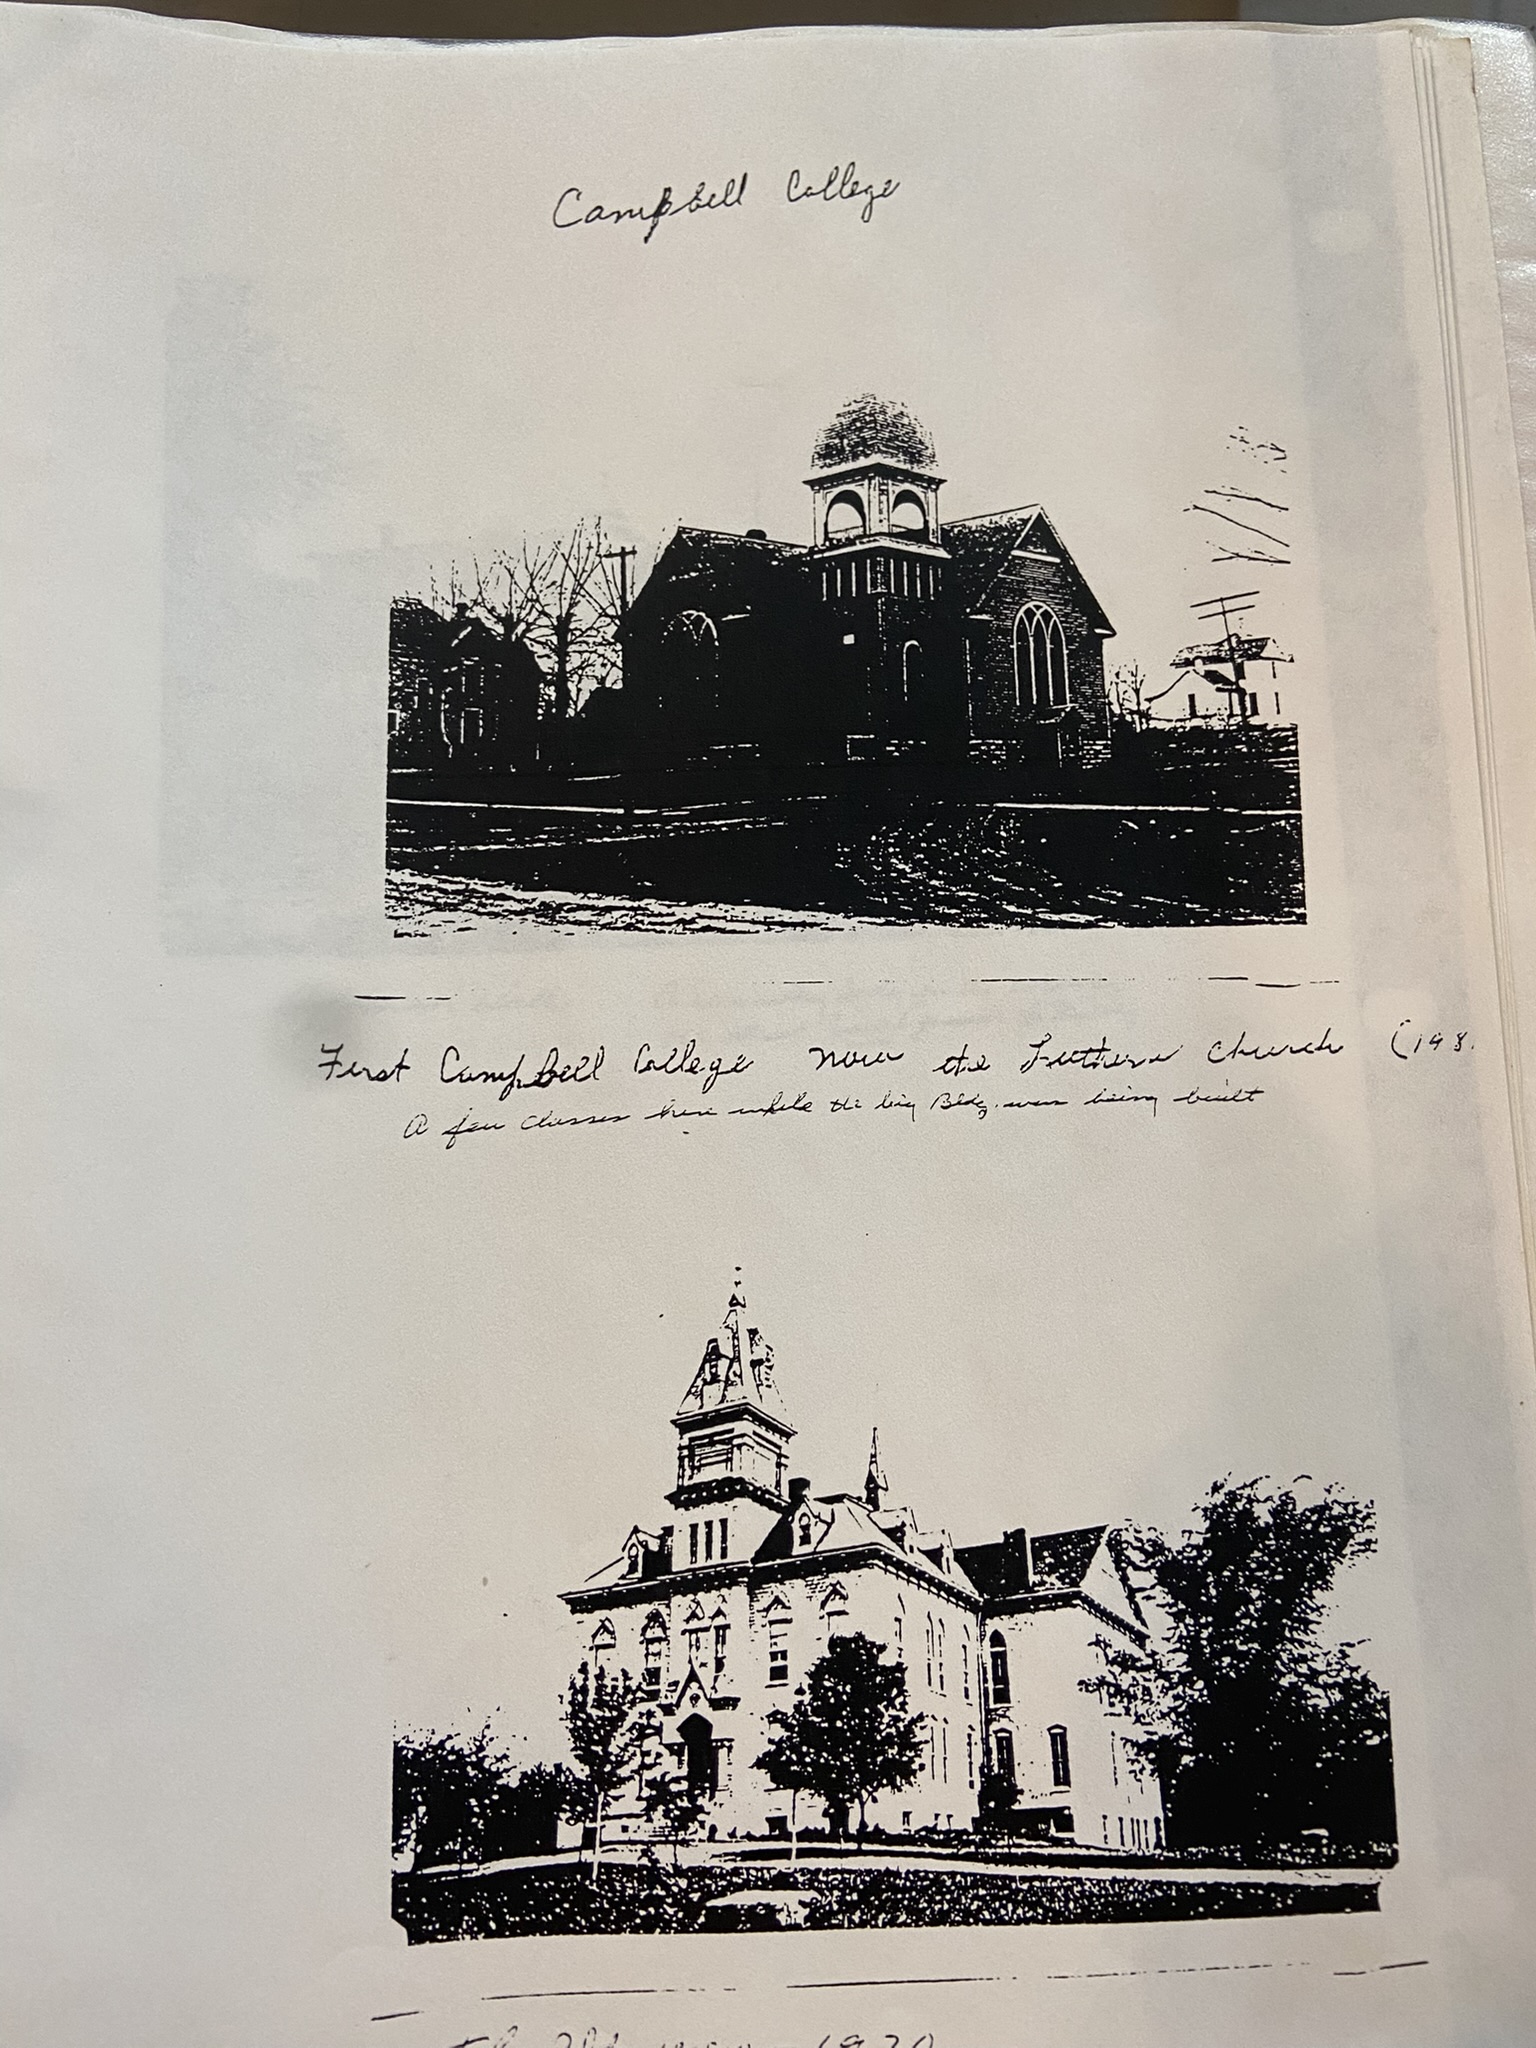 Campbell College
First Campbell College now the Luthern church (198
A few classes here while the big Bldg. was being built
1930